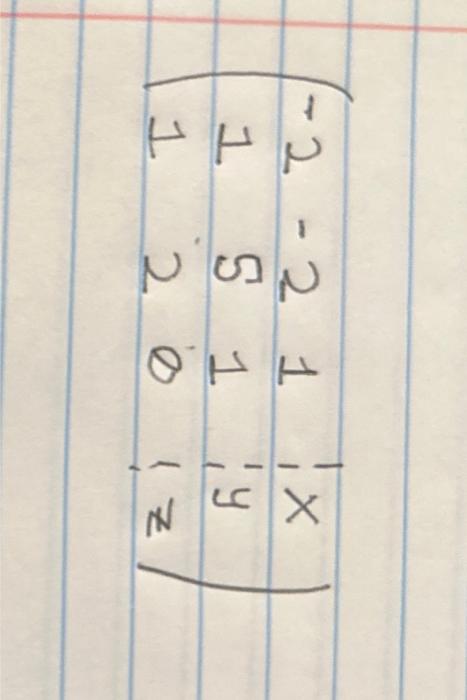 -2 -2 1 | x
1 5 1 | y
1 2 0 | z